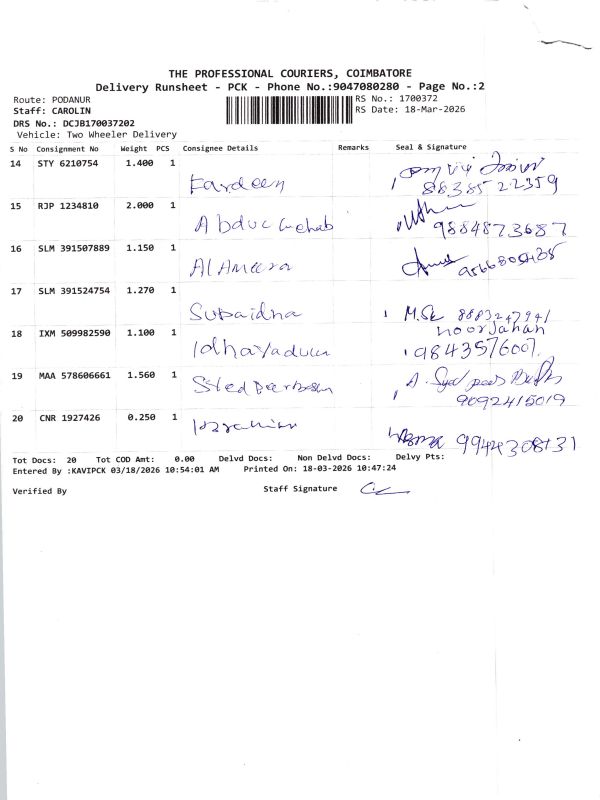 THE PROFESSIONAL COURIERS, COIMBATORE
Delivery Runsheet - PCK - Phone No.:9047080280 - Page No.:2
Route: PODANUR
RS No.: 1700372
Staff: CAROLIN
RS Date: 18-Mar-2026
DRS No.: DCJB170037202
Vehicle: Two Wheeler Delivery
S No Consignment No Weight PCS Consignee Details Remarks Seal & Signature
14 STY 6210754 1.400 1
Fardeen 88385 22359
15 RJP 1234810 2.000 1
9884873687
16 SLM 391507889 1.150 1
Al Ameera
17 SLM 391524754 1.270 1
Subaidha M.Sk 8883247941
18 IXM 509982590 1.100 1
noorjahan
9843576007
19 MAA 578606661 1.560 1
9092415019
20 CNR 1927426 0.250 1
9944308131
Tot Docs: 20 Tot COD Amt: 0.00 Delvd Docs: Non Delvd Docs: Delvy Pts:
Entered By :KAVIPCK 03/18/2026 10:54:01 AM Printed On: 18-03-2026 10:47:24
Verified By Staff Signature